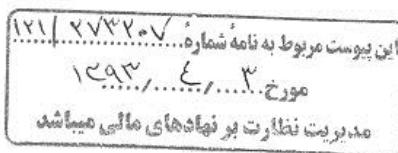 این پیوست مربوط به نامهٔ شمارهٔ ۱۲۱/۲۷۳۲۰۷
مورخ ۱۳۹۳/۴/۳
مدیریت نظارت بر نهادهای مالی میباشد